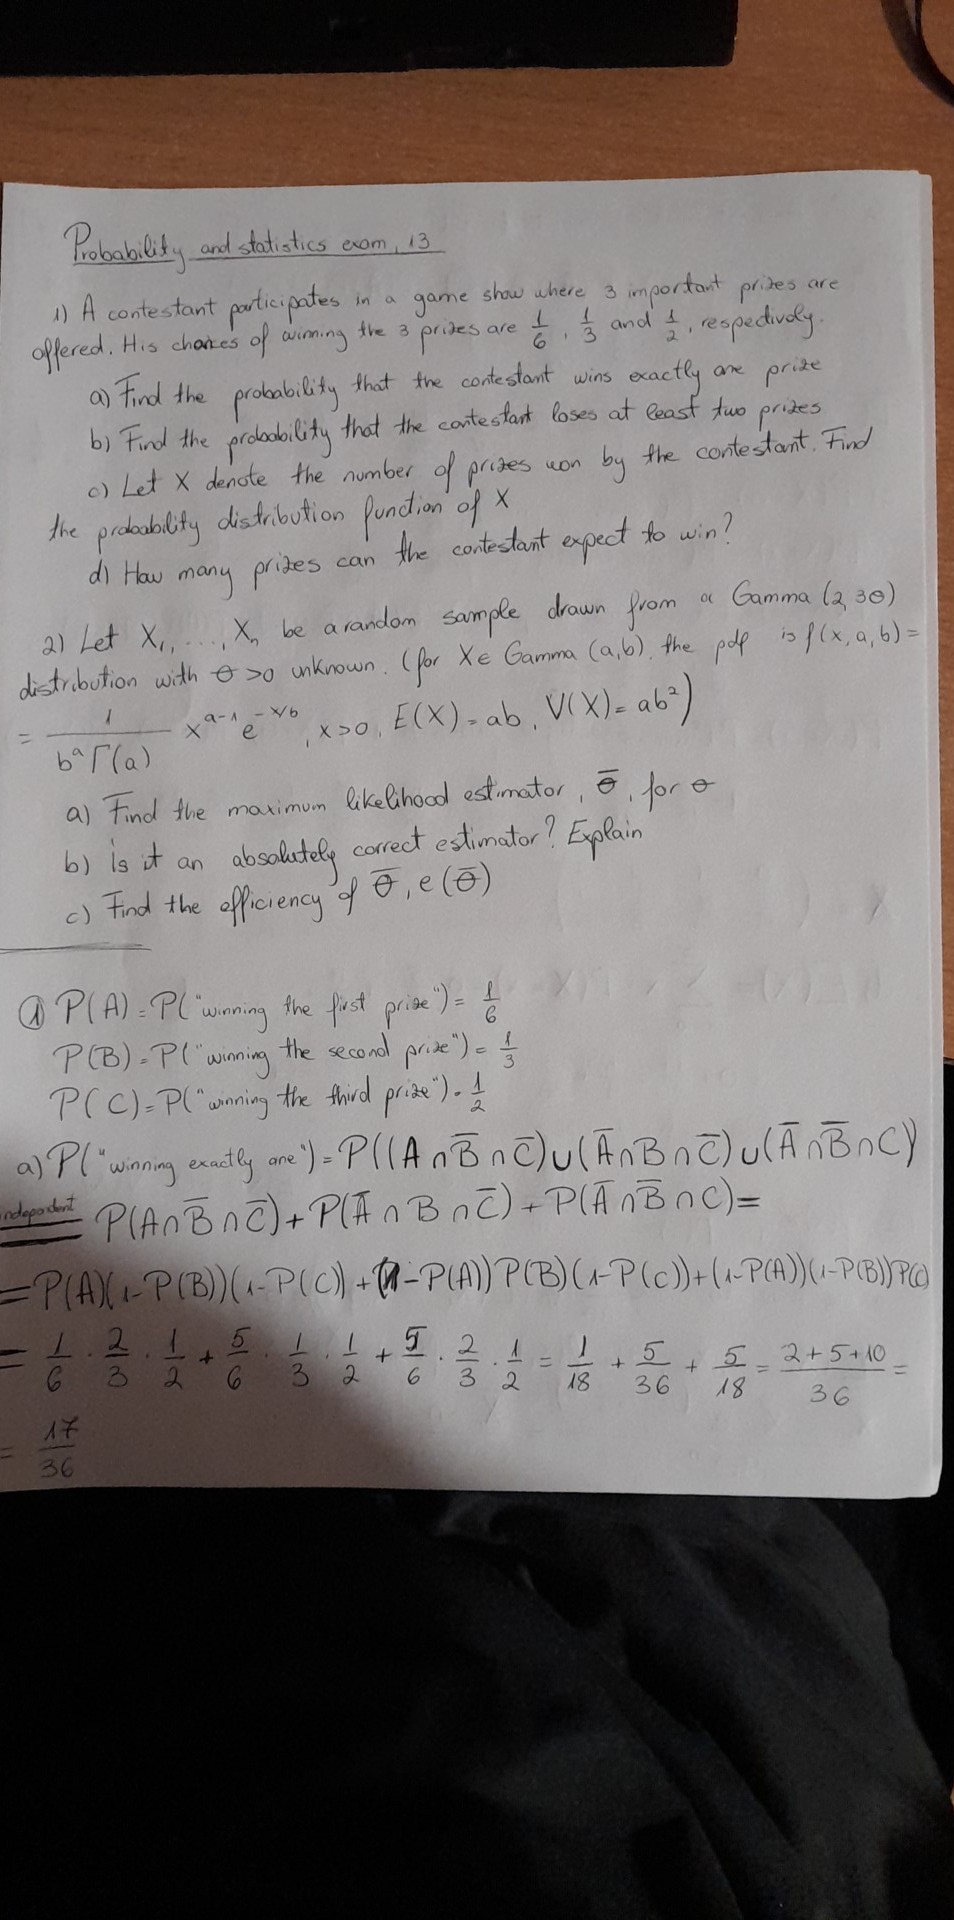 Probability and statistics exam, 13
1) A contestant participates in a game show where 3 important prizes are
offered. His chances of winning the 3 prizes are 1/6, 1/3 and 1/2, respectively.
a) Find the probability that the contestant wins exactly one prize
b) Find the probability that the contestant loses at least two prizes
c) Let X denote the number of prizes won by the contestant. Find
the probability distribution function of X
d) How many prizes can the contestant expect to win?
2) Let X₁, ..., Xₙ be a random sample drawn from a Gamma (2, 3θ)
distribution with θ > 0 unknown. (for X ∈ Gamma (a,b), the pdf is f(x, a, b) =
= 1/(bᵃ Γ(a)) x^(a-1) e^(-x/b), x > 0, E(X) = ab, V(X) = ab²)
a) Find the maximum likelihood estimator, θ̅, for θ
b) is it an absolutely correct estimator? Explain
c) Find the efficiency of θ̅, e(θ̅)
① P(A) = P("winning the first prize") = 1/6
P(B) = P("winning the second prize") = 1/3
P(C) = P("winning the third prize") = 1/2
a) P("winning exactly one") = P((A ∩ B̅ ∩ C̅) ∪ (A̅ ∩ B ∩ C̅) ∪ (A̅ ∩ B̅ ∩ C))
independent P(A ∩ B̅ ∩ C̅) + P(A̅ ∩ B ∩ C̅) + P(A̅ ∩ B̅ ∩ C) =
= P(A)(1-P(B))(1-P(C)) + (1-P(A))P(B)(1-P(C)) + (1-P(A))(1-P(B))P(C)
= 1/6 · 2/3 · 1/2 + 5/6 · 1/3 · 1/2 + 5/6 · 2/3 · 1/2 = 1/18 + 5/36 + 5/18 = (2+5+10)/36 =
= 17/36